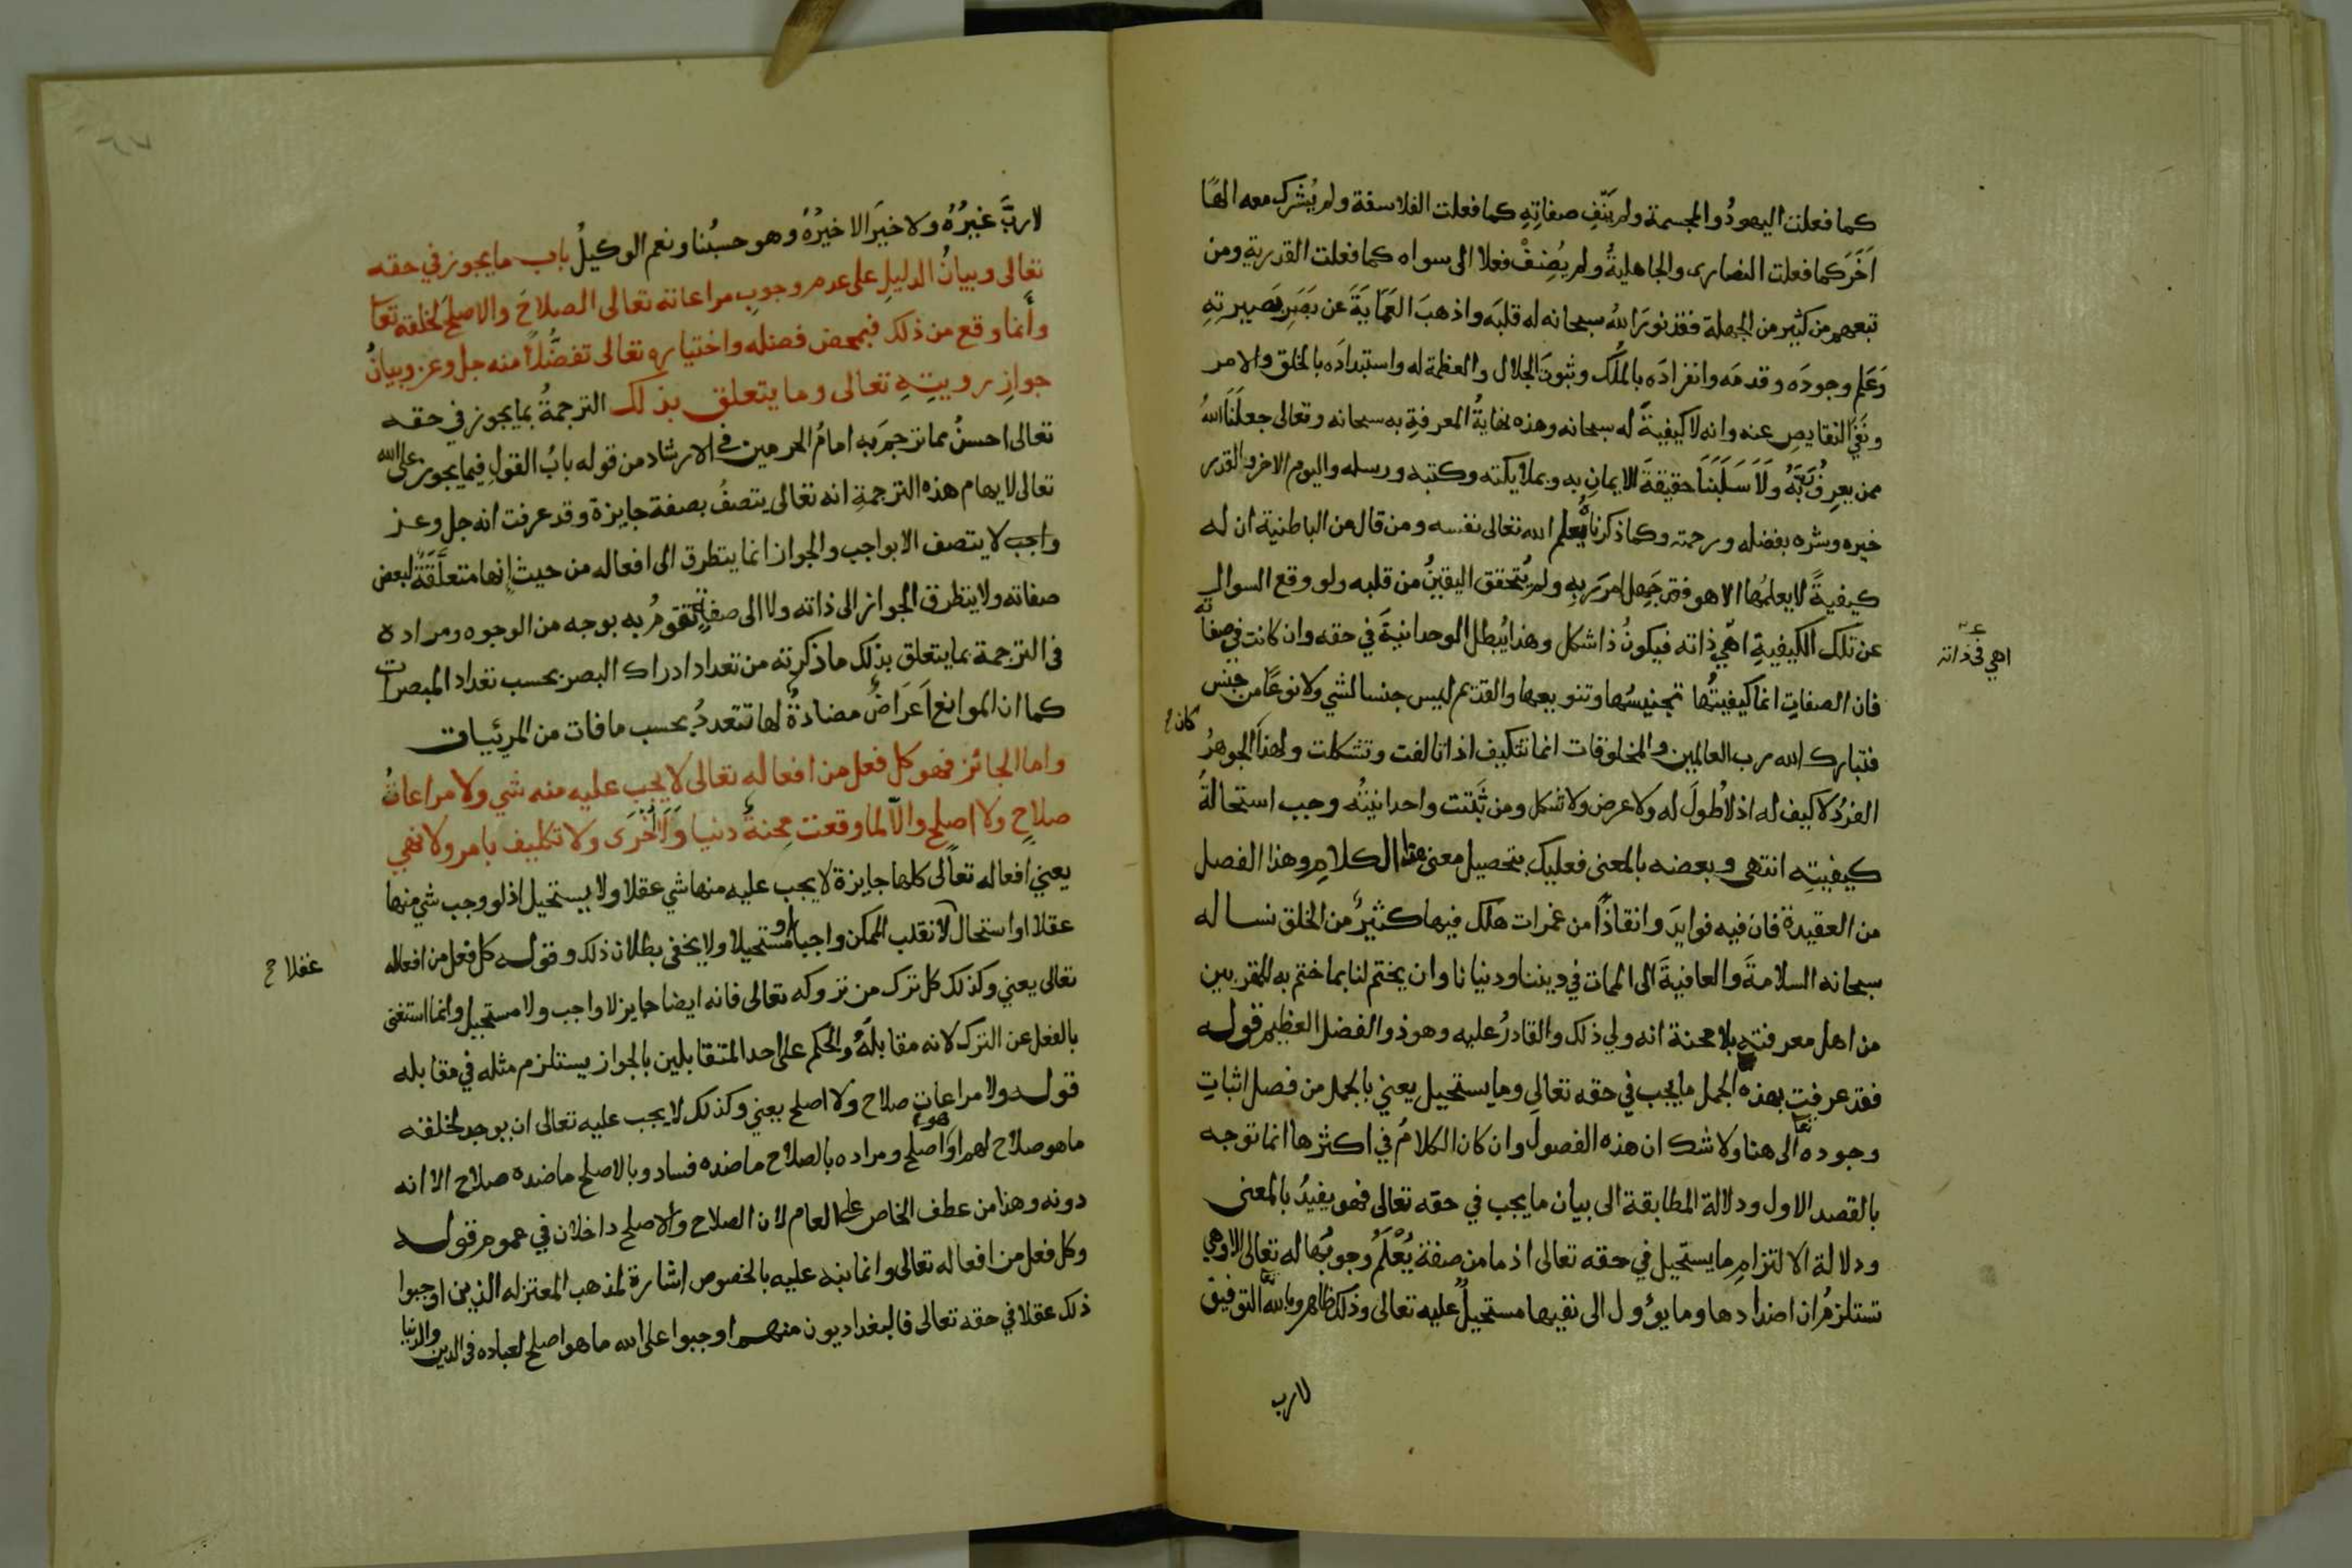 كما فعلت اليهودُ والمجسمة ولم يَنفِ صفاتِهِ كما فعلت الفلاسفة ولم يُشرك معه الهًا
آخَرَ كما فعلت النصارى والجاهليةُ ولم يُضِفْ فعلا الى سواه كما فعلت القدرية ومن
تبعهم من كثير من الجهلة فقد نورَ اللهُ سبحانه له قلبَه واذهبَ العَمَايَةَ عن بَصَرِ بَصيرتِهِ
وَعَلِم وجودَه وقدمَه وانفرادَه بالمُلك وثبوتَ الجلال والعظمة له واستبدادَه بالخلق والامر
ونَفْيَ النقايصِ عنه وانه لا كيفيةَ له سبحانه وهذه نهايةُ المعرفةِ به سبحانه وتعالى جعلَنَا اللهُ
ممن يعرِفُ رَبَّهُ ولَا سَلَبَنَا حقيقةَ الايمانِ به وبملايكته وكتبه ورسله واليوم الاخر والقدر
خيره وشره بفضله ورحمته وكما ذكرناهُ يعلم الله تعالى نفسه ومن قال من الباطنية ان له
كيفيةً لا يعلمُها الا هو فقد جَهِل امرَ ربِهِ ولم يُتحقق اليقينُ من قلبه ولو وقع السوال
عن تلك الكيفيةِ اهي ذاته فيكونُ ذا شكل وهذا يُبطل الوحدانيةَ في حقه وان كانت في صفاته
اهي في ذاته
فان الصفاتِ انما كيفيتُها تجنيسُها وتنويعها والقديم ليس جنسا لشي ولا نوعًا من جنس
فتبارك الله رب العالمين والمخلوقات انما تتكيف اذا تالفت وتشكلت ولهذا كان الجوهرُ
الفردُ لا كيف له اذ لا طُولَ له ولا عرض ولا شكل ومن ثَبَتت واحدانيتُه وجب استحالةُ
كيفيتِه انتهى وبعضه بالمعنى فعليك بتحصيل معنى هذا الكلامِ وهذا الفصل
من العقيدة فان فيه فوايدَ وانقاذًا من غمرات هلك فيها كثيرٌ من الخلق نساله
سبحانه السلامةَ والعافيةَ الى الممات في ديننا ودنيانا وان يختم لنا بما ختم به للمقربين
من اهل معرفته بلا محنة انه ولي ذلك والقادرُ عليه وهو ذو الفضل العظيم قوله
فقد عرفت بهذه الجمل ما يجب في حقه تعالى وما يستحيل يعني بالجمل من فصل اثباتِ
وجوده تعا الى هنا ولا شك ان هذه الفصول وان كان الكلامُ في اكثرها انما توجه
بالقصد الاول ودلالة المطابقة الى بيان ما يجب في حقه تعالى فهو يفيدُ بالمعنى
ودلالة الالتزامِ ما يستحيل في حقه تعالى اذ ما من صفة يُعْلَمُ وجوبُها له تعالى الا وهي
تستلزمُ ان اضدادها وما يؤول الى نفيها مستحيلٌ عليه تعالى وذلك ظاهر وبالله التوفيق
لا رب
لا ربَّ غيرُهُ ولا خيرَ الا خيرُهُ وهو حسبُنا ونعم الوكيلُ باب ما يجوز في حقه
تعالى وبيانُ الدليلِ على عدم وجوبِ مراعاته تعالى الصلاحَ والاصلحَ لخلقه تعا
وأنما وقع من ذلك فبمحض فضله واختياره تعالى تفضُّلاً منه جل وعز وبيانُ
جوازِ رويتِهِ تعالى وما يتعلق بذلك الترجمةُ بما يجوز في حقه
تعالى احسنُ مما ترجمَ به امامُ الحرمين في الارشاد من قوله بابُ القول فيما يجوز على الله
تعالى لايهام هذه الترجمةِ انه تعالى يتصفُ بصفة جايزة وقد عرفت انه جل وعز
واجب لا يتصف الا بواجب والجواز انما يتطرق الى افعاله من حيث إنها متعلَّقَةٌ لبعض
صفاته ولا يتطرق الجواز الى ذاته ولا الى صفةٍ تقومُ به بوجه من الوجوه ومراده
في الترجمة بما يتعلق بذلك ما ذكرته من تعداد ادراك البصر بحسب تعداد المبصرات
كما ان الموانع اَعَراضٌ مضادةٌ لها تتعددُ بحسب ما فات من المرئيات
واما الجائز فهو كل فعل من افعاله تعالى لا يجب عليه منه شي ولا مراعاةُ
صلاحٍ ولا اصلح والا لما وقعت محِنةُ دنيا وَاُخْرَى ولا تكليف بامر ولا نهي
يعني افعاله تعالى كلها جايزة لا يجب عليه منها شي عقلا ولا يستحيل اذ لو وجب شي منها
عقلا او استحال لانقلب الممكن واجبا او مستحيلا ولا يخفى بطلان ذلك وقوله كل فعل من افعاله
عقلا ح
تعالى يعني وكذلك كل ترك من تروكه تعالى فانه ايضا جايز لا واجب ولا مستحيل وانما استغنى
بالفعل عن الترك لانه مقابلَهُ والحكم على احد المتقابلين بالجواز يستلزم مثله في مقابله
قوله ولا مراعات صلاح ولا اصلح يعني وكذلك لا يجب عليه تعالى ان يوجد لخلقه
ما هو صلاح لهم او هو اصلح ومراده بالصلاح ما ضده فساد وبالاصلح ما ضده صلاح الا انه
دونه وهذا من عطف الخاص على العام لان الصلاح والاصلح داخلان في عموم قوله
وكل فعل من افعاله تعالى وانما نبه عليه بالخصوص اشارة لمذهب المعتزله الذين اوجبوا
ذلك عقلا في حقه تعالى فالبغداديون منهم اوجبوا على الله ما هو اصلح لعباده في الدين والدنيا